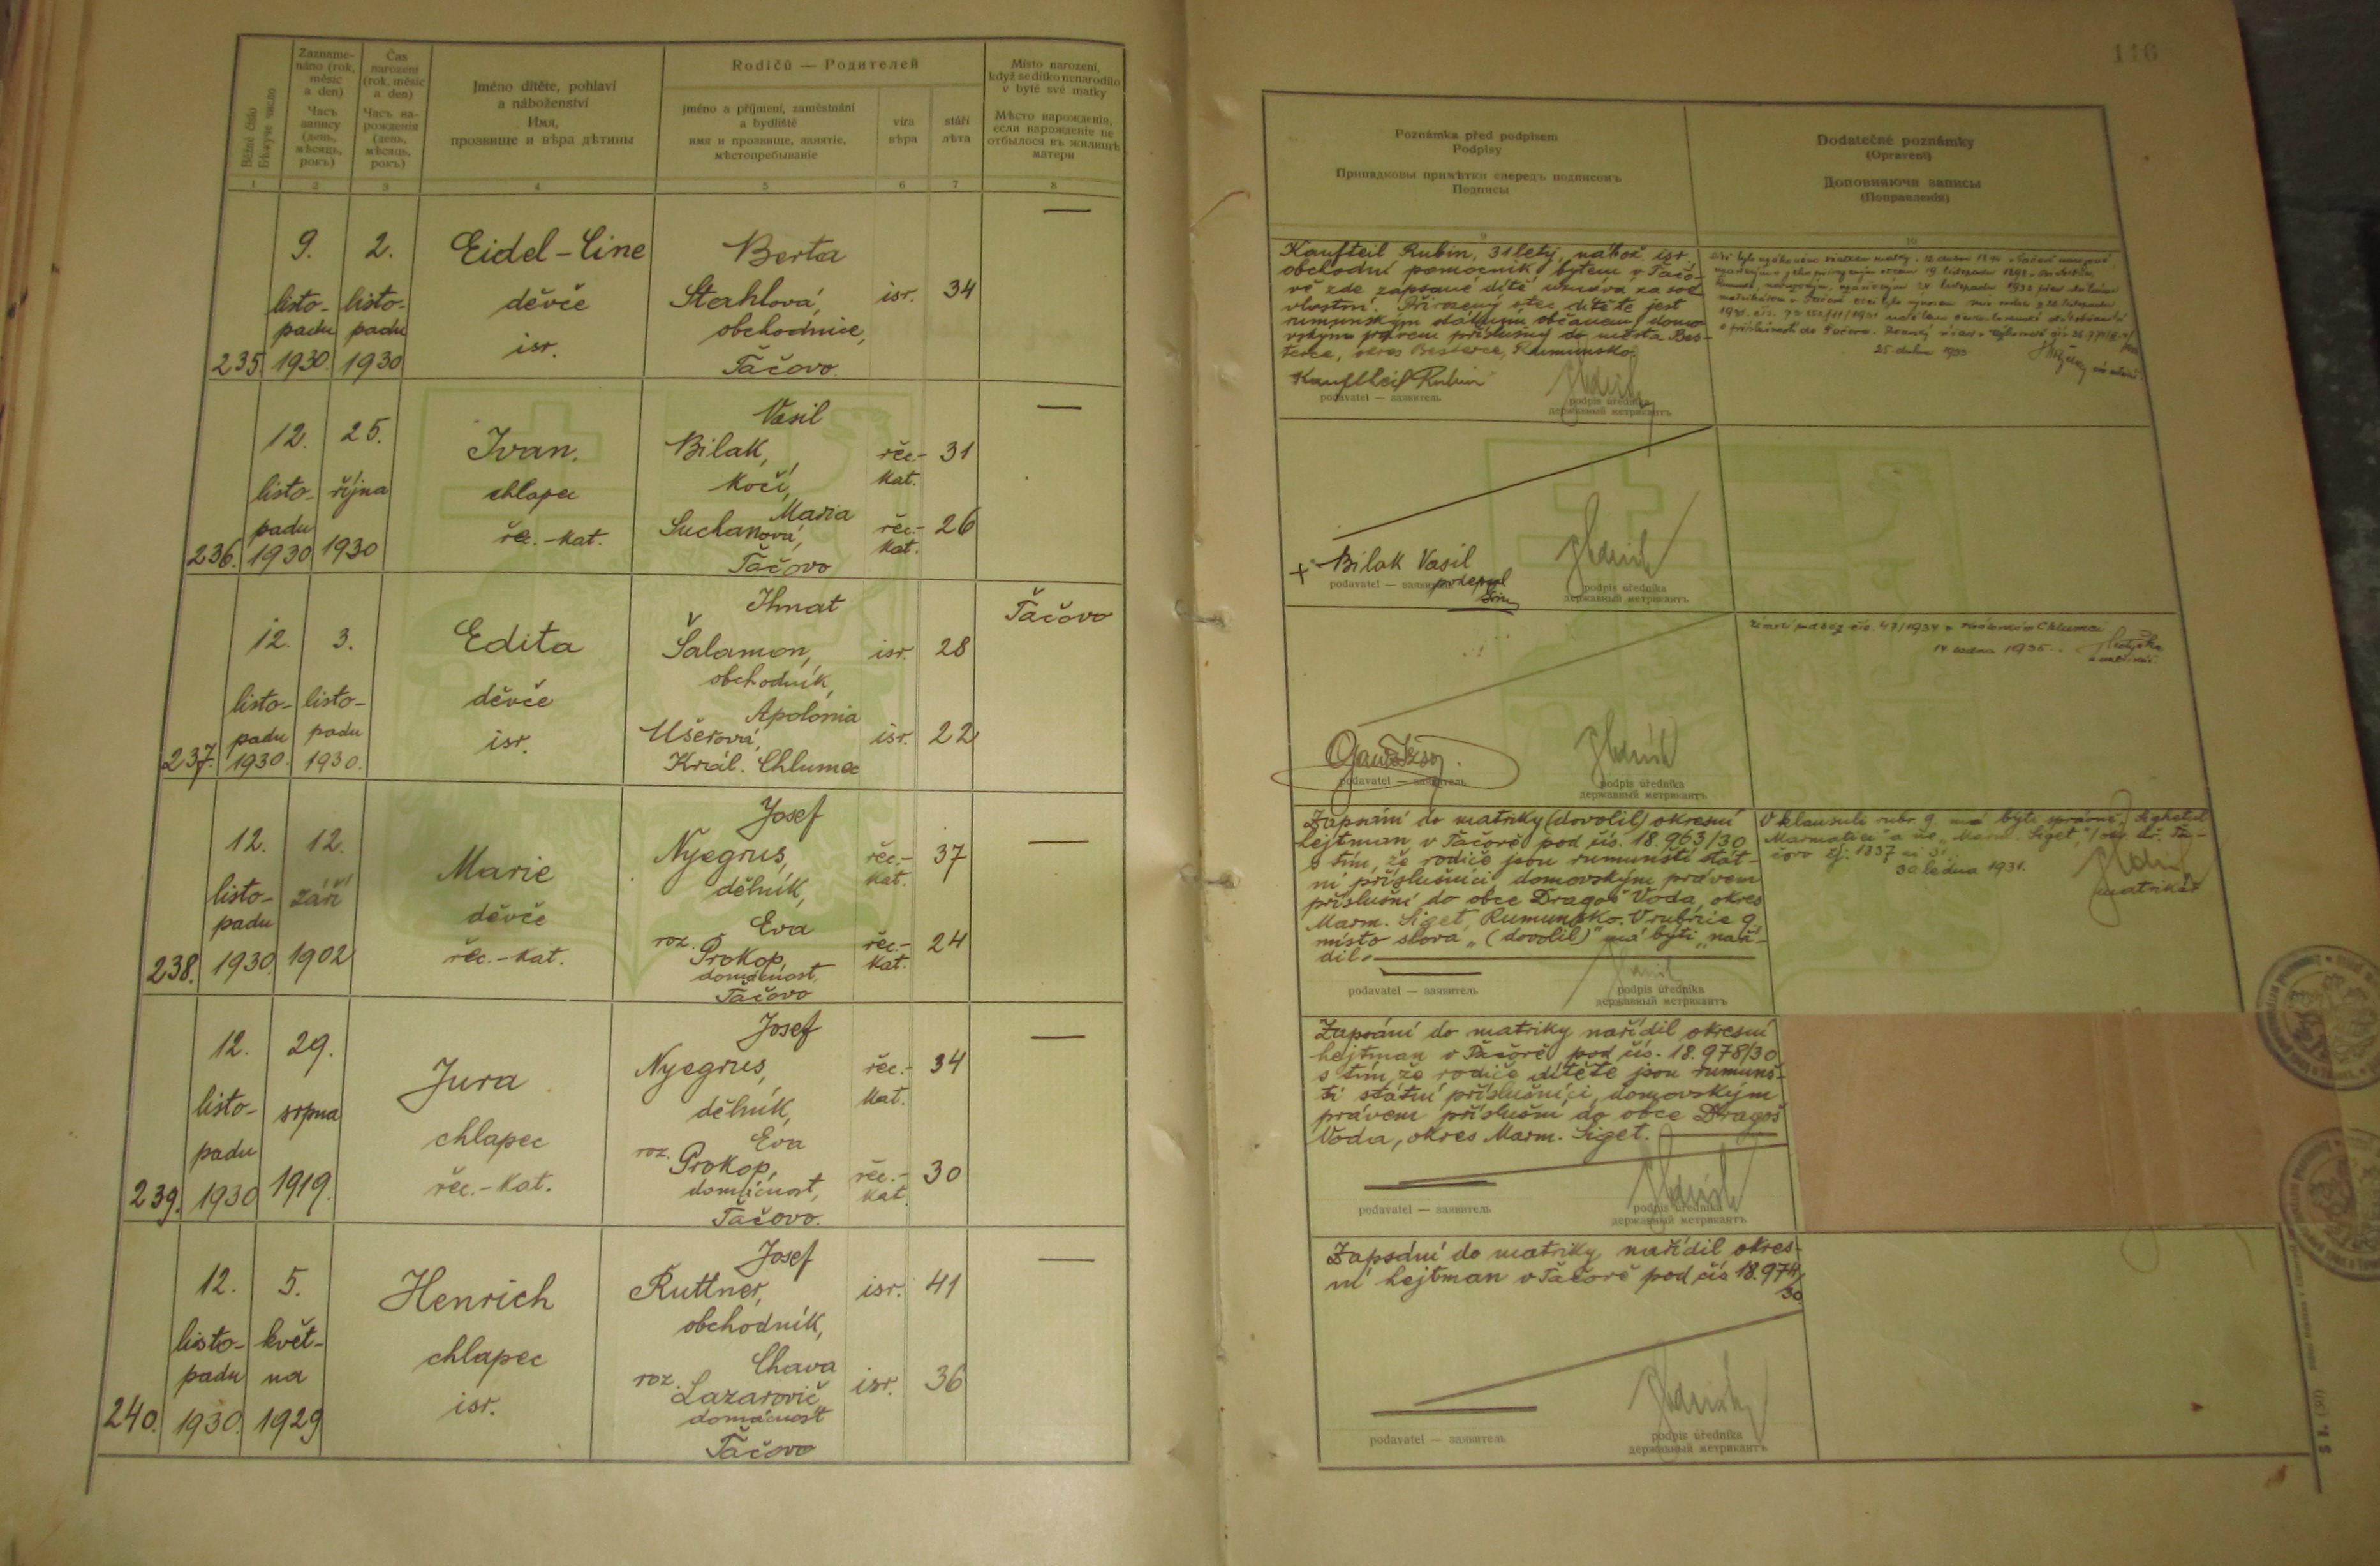 116
Běžné číslo
Бѣжуче число
Zazname-
náno (rok,
měsíc
a den)
Часъ
запису
(день,
мѣсяць,
рокъ)
Čas
narození
(rok, měsíc
a den)
Часъ на-
рожденія
(день,
мѣсяць,
рокъ)
Jméno dítěte, pohlaví
a náboženství
Имя,
прозвище и вѣра дѣтины
Rodičů — Родителей
jméno a příjmení, zaměstnání
a bydliště
имя и прозвище, занятіе,
мѣстопребываніе
víra
вѣра
stáří
лѣта
Místo narození,
když se dítko nenarodilo
v bytě své matky
Мѣсто нарожденія,
если нарожденіе не
отбылося въ жилищѣ
матери
1 2 3 4 5 6 7 8
235.
9.
listo-
padu
1930
2.
listo-
padu
1930
Eidel-Cine
děvče
isr.
Berta
Stahlová,
obchodnice,
Tačovo
isr. 34
—
236.
12.
listo-
padu
1930
25.
října
1930
Ivan.
chlapec
řec.-kat.
Vasil
Bilak,
kočí,
Maria
Suchanová,
Tačovo
řec.-
kat.
31
řec.-
kat.
26
—
237.
12.
listo-
padu
1930.
3.
listo-
padu
1930.
Edita
děvče
isr.
Ihnat
Šalamon,
obchodník,
Apolonia
Ušerová,
Král. Chlumec
isr. 28
isr. 22
Tačovo
238.
12.
listo-
padu
1930.
12.
září
1902
Marie
děvče
řec.-kat.
Josef
Nyegrus,
dělník,
Eva
roz. Prokop,
domácnost,
Tačovo
řec.-
kat.
37
řec.-
kat.
24
—
239.
12.
listo-
padu
1930
29.
srpna
1919.
Jura
chlapec
řec.-kat.
Josef
Nyegrus,
dělník,
Eva
roz. Prokop,
domácnost,
Tačovo.
řec.-
kat.
34
řec.-
kat.
30
—
240.
12.
listo-
padu
1930.
5.
květ-
na
1929
Henrich
chlapec
isr.
Josef
Ruttner,
obchodník,
Chava
roz. Lazarovič
domácnost
Tačovo
isr. 41
isr. 36
—
Poznámka před podpisem
Podpisy
Припадковы примѣтки спередъ подписомъ
Подписы
Dodatečné poznámky
(Opravení)
Доповняючи записы
(Поправленія)
9 10
Kaufteil Rubin, 31letý, nábož. isr.
obchodní pomocník bytem v Tačo-
vě zde zapsané dítě uznává za své
vlastní. Přirozený otec dítěte jest
rumunským státním občanem, domo-
vským právem příslušný do města Bes-
terce, okres Besterce, Rumunsko.
Kaufteil Rubin
podavatel — заявитель
podpis úředníka
державный метрикантъ
25. dubna
+ Bilak Vasil
podavatel — заявитель
podepsal
podpis úředníka
державный метрикантъ
47/1934 Chlumci
1935.
podavatel — заявитель
podpis úředníka
державный метрикантъ
Zapsání do matriky (dovolil) okresní
hejtman v Tačově pod čís. 18.963/30
s tím, že rodiče jsou rumunští stát-
ní příslušníci domovským právem
příslušní do obce Dragoš Voda, okres
Marm. Siget, Rumunsko. V rubrice 9.
místo slova „(dovolil)“ má býti „naří-
dil“
podavatel — заявитель
podpis úředníka
державный метрикантъ
V klausuli rubr. 9. má býti správně „Sighetul
Marmatiei“ a ne „Marm. Siget“,
1837
30 ledna 1931.
matrikář
Zapsání do matriky nařídil okresní
hejtman v Tačově pod čís. 18.978/30
s tím, že rodiče dítěte jsou rumunš-
tí státní příslušníci, domovským
právem příslušní do obce Dragoš
Voda, okres Marm. Siget.
podavatel — заявитель
podpis úředníka
державный метрикантъ
Zapsání do matriky nařídil okres-
ní hejtman v Tačově pod čís 18.974/
30.
podavatel — заявитель
podpis úředníka
державный метрикантъ